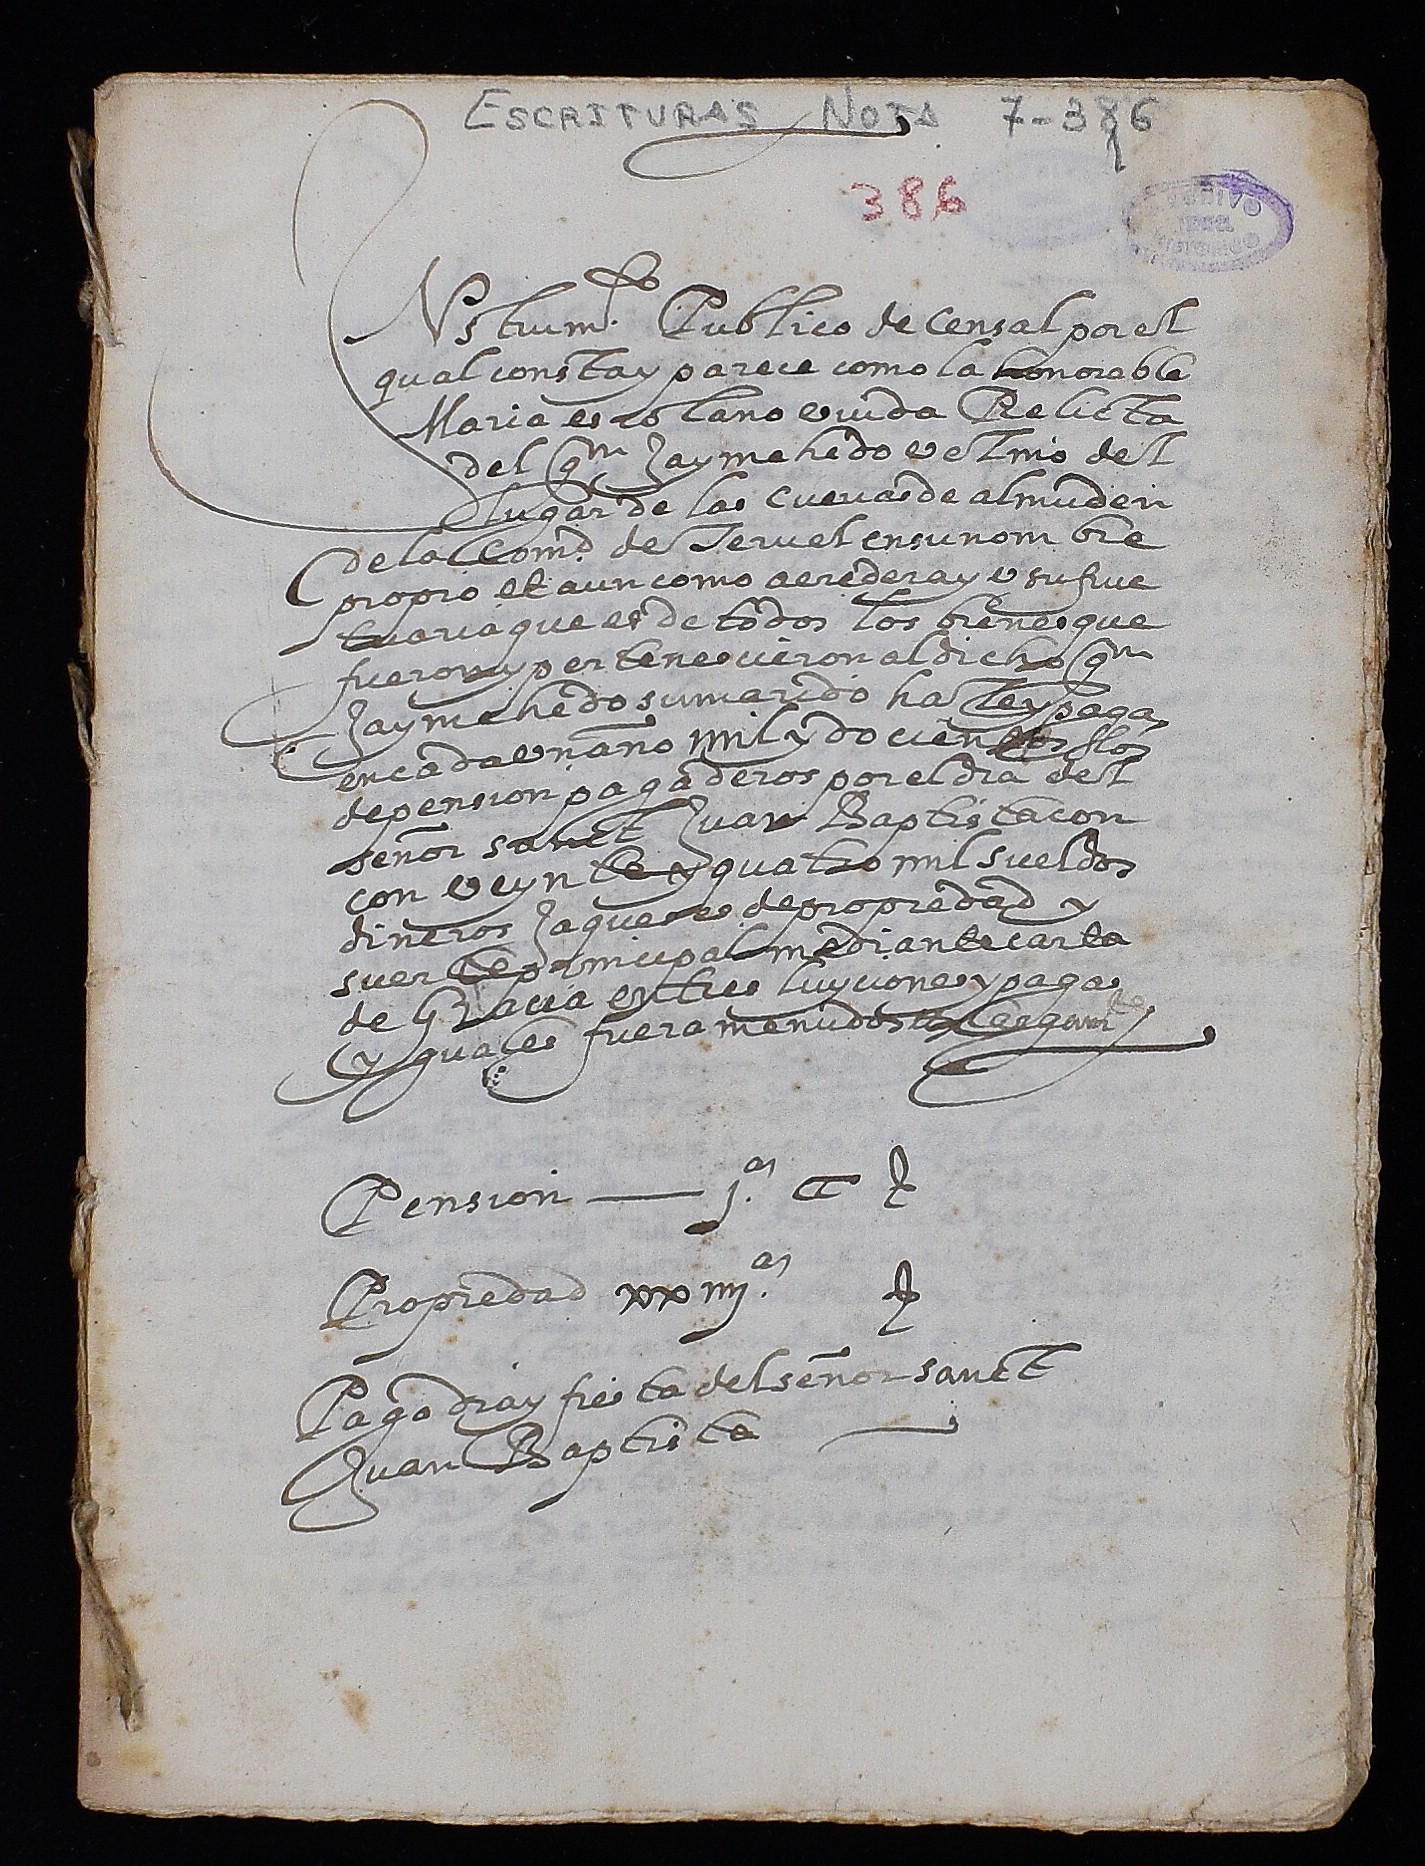 ESCRITURAS NOTA 7-386
386
Nstrumto. Publico de censal por el
qual consta y parece como la honorable
Maria escolano viuda Relicta
del qm Jayme hedo veçino del
lugar de las cuevas de almuden
de la Comd de Teruel en su nombre
propio et aun como aeredera y vsufruc
tuaria que es de todos los bienes que
fueron y pertenescieron al dicho qm
Jayme hedo su marido haze y paga
en cada vn año mil y docientos slos
de pension pagaderos por el dia del
señor sanct Juan Baptista con
con veynte y quatro mil sueldos
dineros Jaqueses de propriedad y
suerte principal mediante carta
de Gracia en tres luyciones y pagas
yguales fuera menudos
Pension — j.m CC ß
Propriedad xxiiij.m ß
Paga dia y fiesta del señor sanct
Juan Baptista